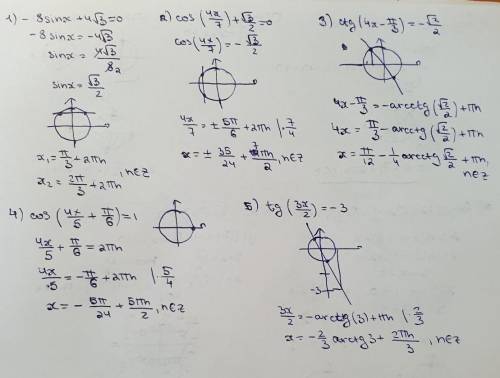 1) - 8sinx + 4√3 = 0
- 8sinx = -4√3
sinx = 4√3/8₂
sinx = √3/2
x₁ = π/3 + 2πn
x₂ = 2π/3 + 2πn , n∈Z
2) cos(4x/7) + √3/2 = 0
cos(4x/7) = - √3/2
4x/7 = ± 5π/6 + 2πn | · 7/4
x = ± 35/24 + 7πn/2 , n∈Z
3) ctg(4x - π/3) = - √2/2
4x - π/3 = -arcctg(√2/2) + πn
4x = π/3 - arcctg(√2/2) + πn
x = π/12 - 1/4 arcctg √2/2 + πn,
n∈Z
4) cos(4x/5 + π/6) = 1
4x/5 + π/6 = 2πn
4x/5 = - π/6 + 2πn | · 5/4
x = - 5π/24 + 5πn/2 , n∈Z
5) tg(3x/2) = -3
-3
3x/2 = -arctg(3) + πn | · 2/3
x = - 2/3 arctg3 + 2πn/3 , n∈Z